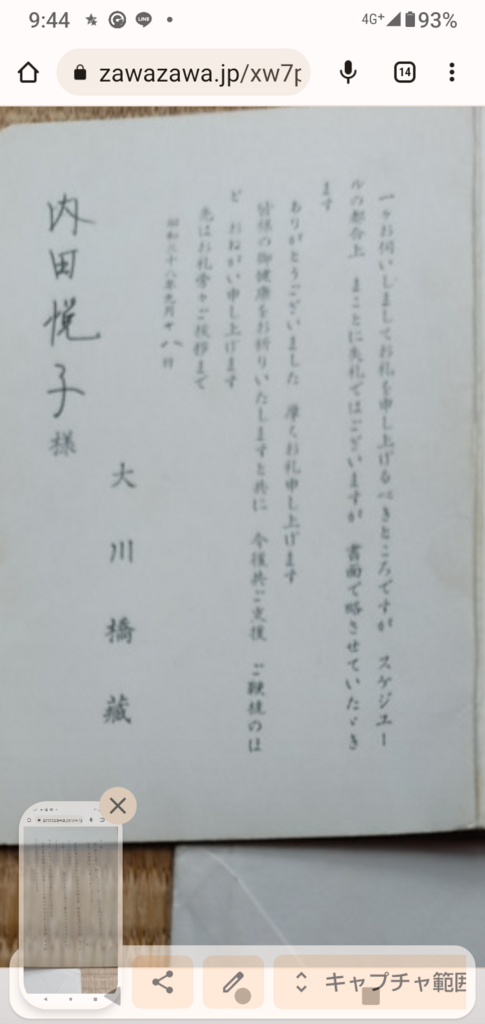 9:44
4G+
93%
zawazawa.jp/xw7p
14
一々お伺いしましてお礼を申し上げるべきところですが スケジュー
ルの都合上 まことに失礼ではございますが 書面で略させていたゞき
ます
ありがとうございました 厚くお礼申し上げます
皆様の御健康をお祈りいたしますと共に 今後共ご支援 ご鞭撻のほ
ど おねがい申し上げます
先はお礼旁々ご挨拶まで
昭和三十八年九月廿八日
大川橋藏
内田悦子様
キャプチャ範囲